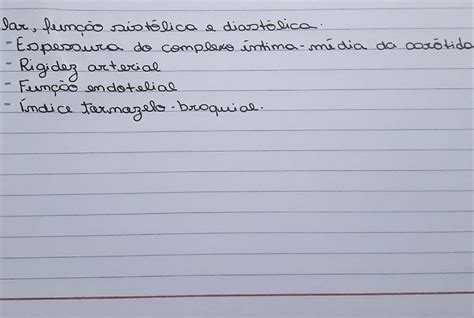 lar, função sistólica e diastólica.
- Espessura do complexo íntima-média da carótida
- Rigidez arterial
- Função endotelial
- Índice tornozelo-braquial.